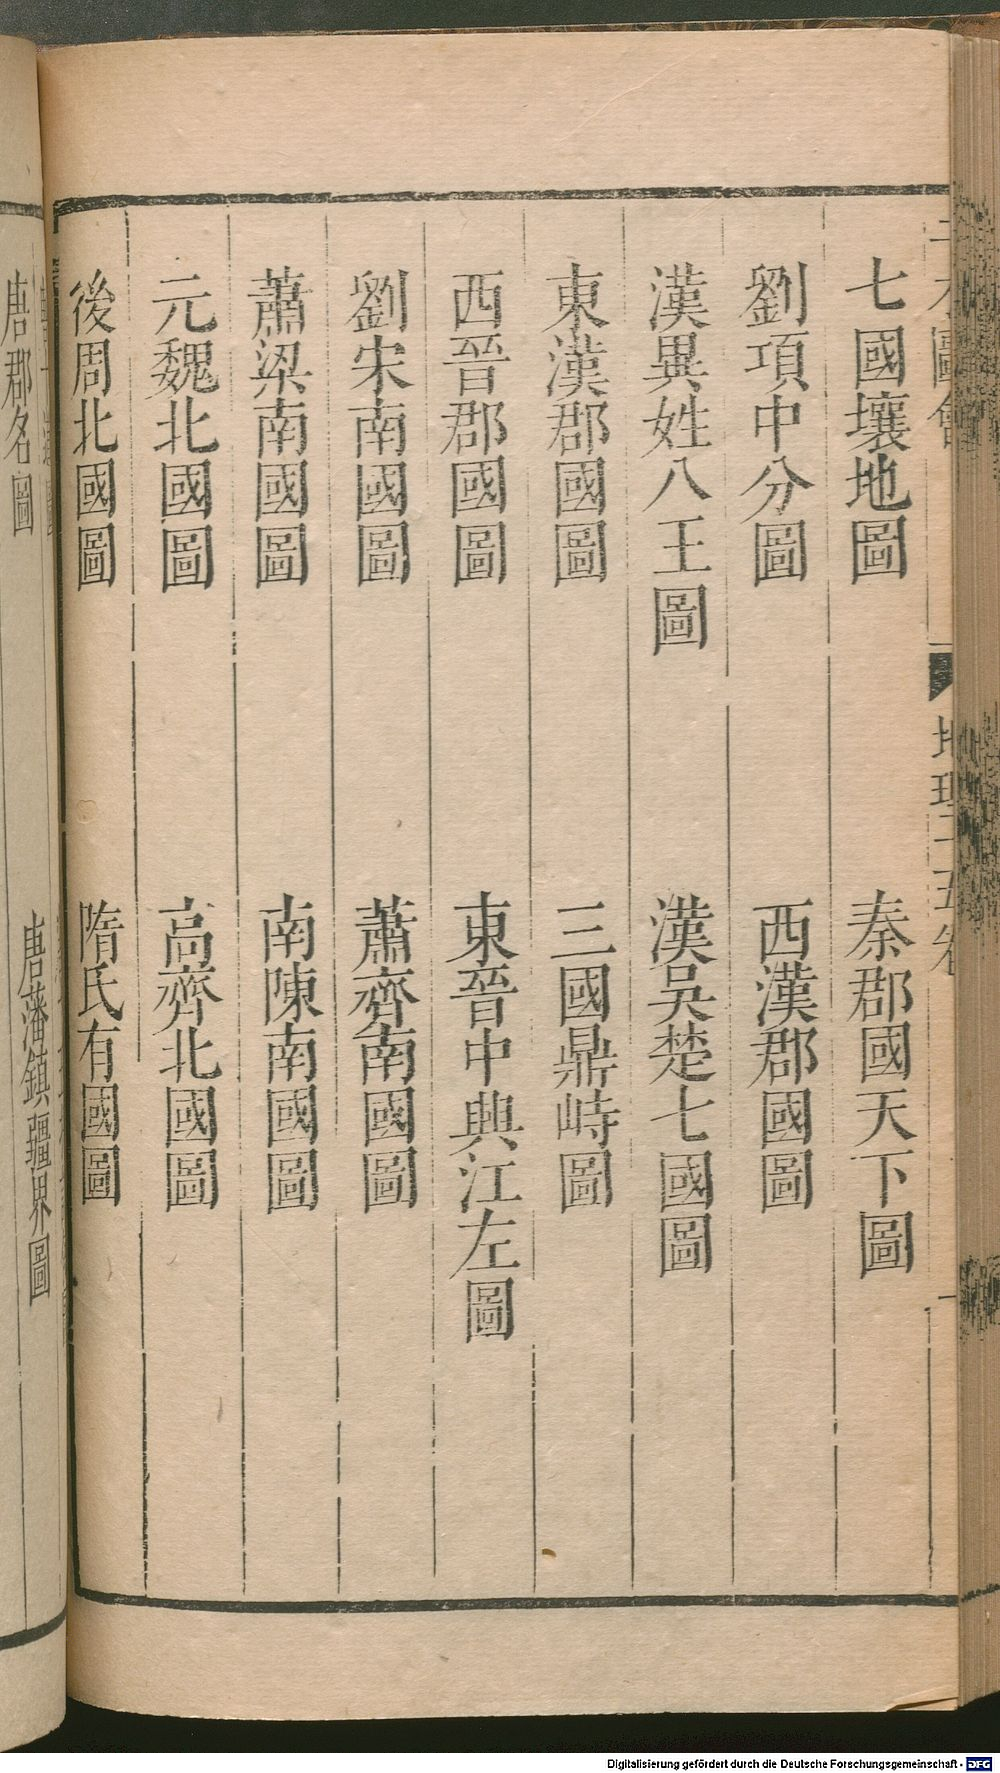 七國壤地圖 秦郡國天下圖
劉項中分圖 西漢郡國圖
漢異姓八王圖 漢吳楚七國圖
東漢郡國圖 三國鼎峙圖
西晉郡國圖 東晉中興江左圖
劉宋南國圖 蕭齊南國圖
蕭梁南國圖 南陳南國圖
元魏北國圖 高齊北國圖
後周北國圖 隋氏有國圖
唐郡名圖 唐藩鎮疆界圖
Digitalisierung gefördert durch die Deutsche Forschungsgemeinschaft - DFG